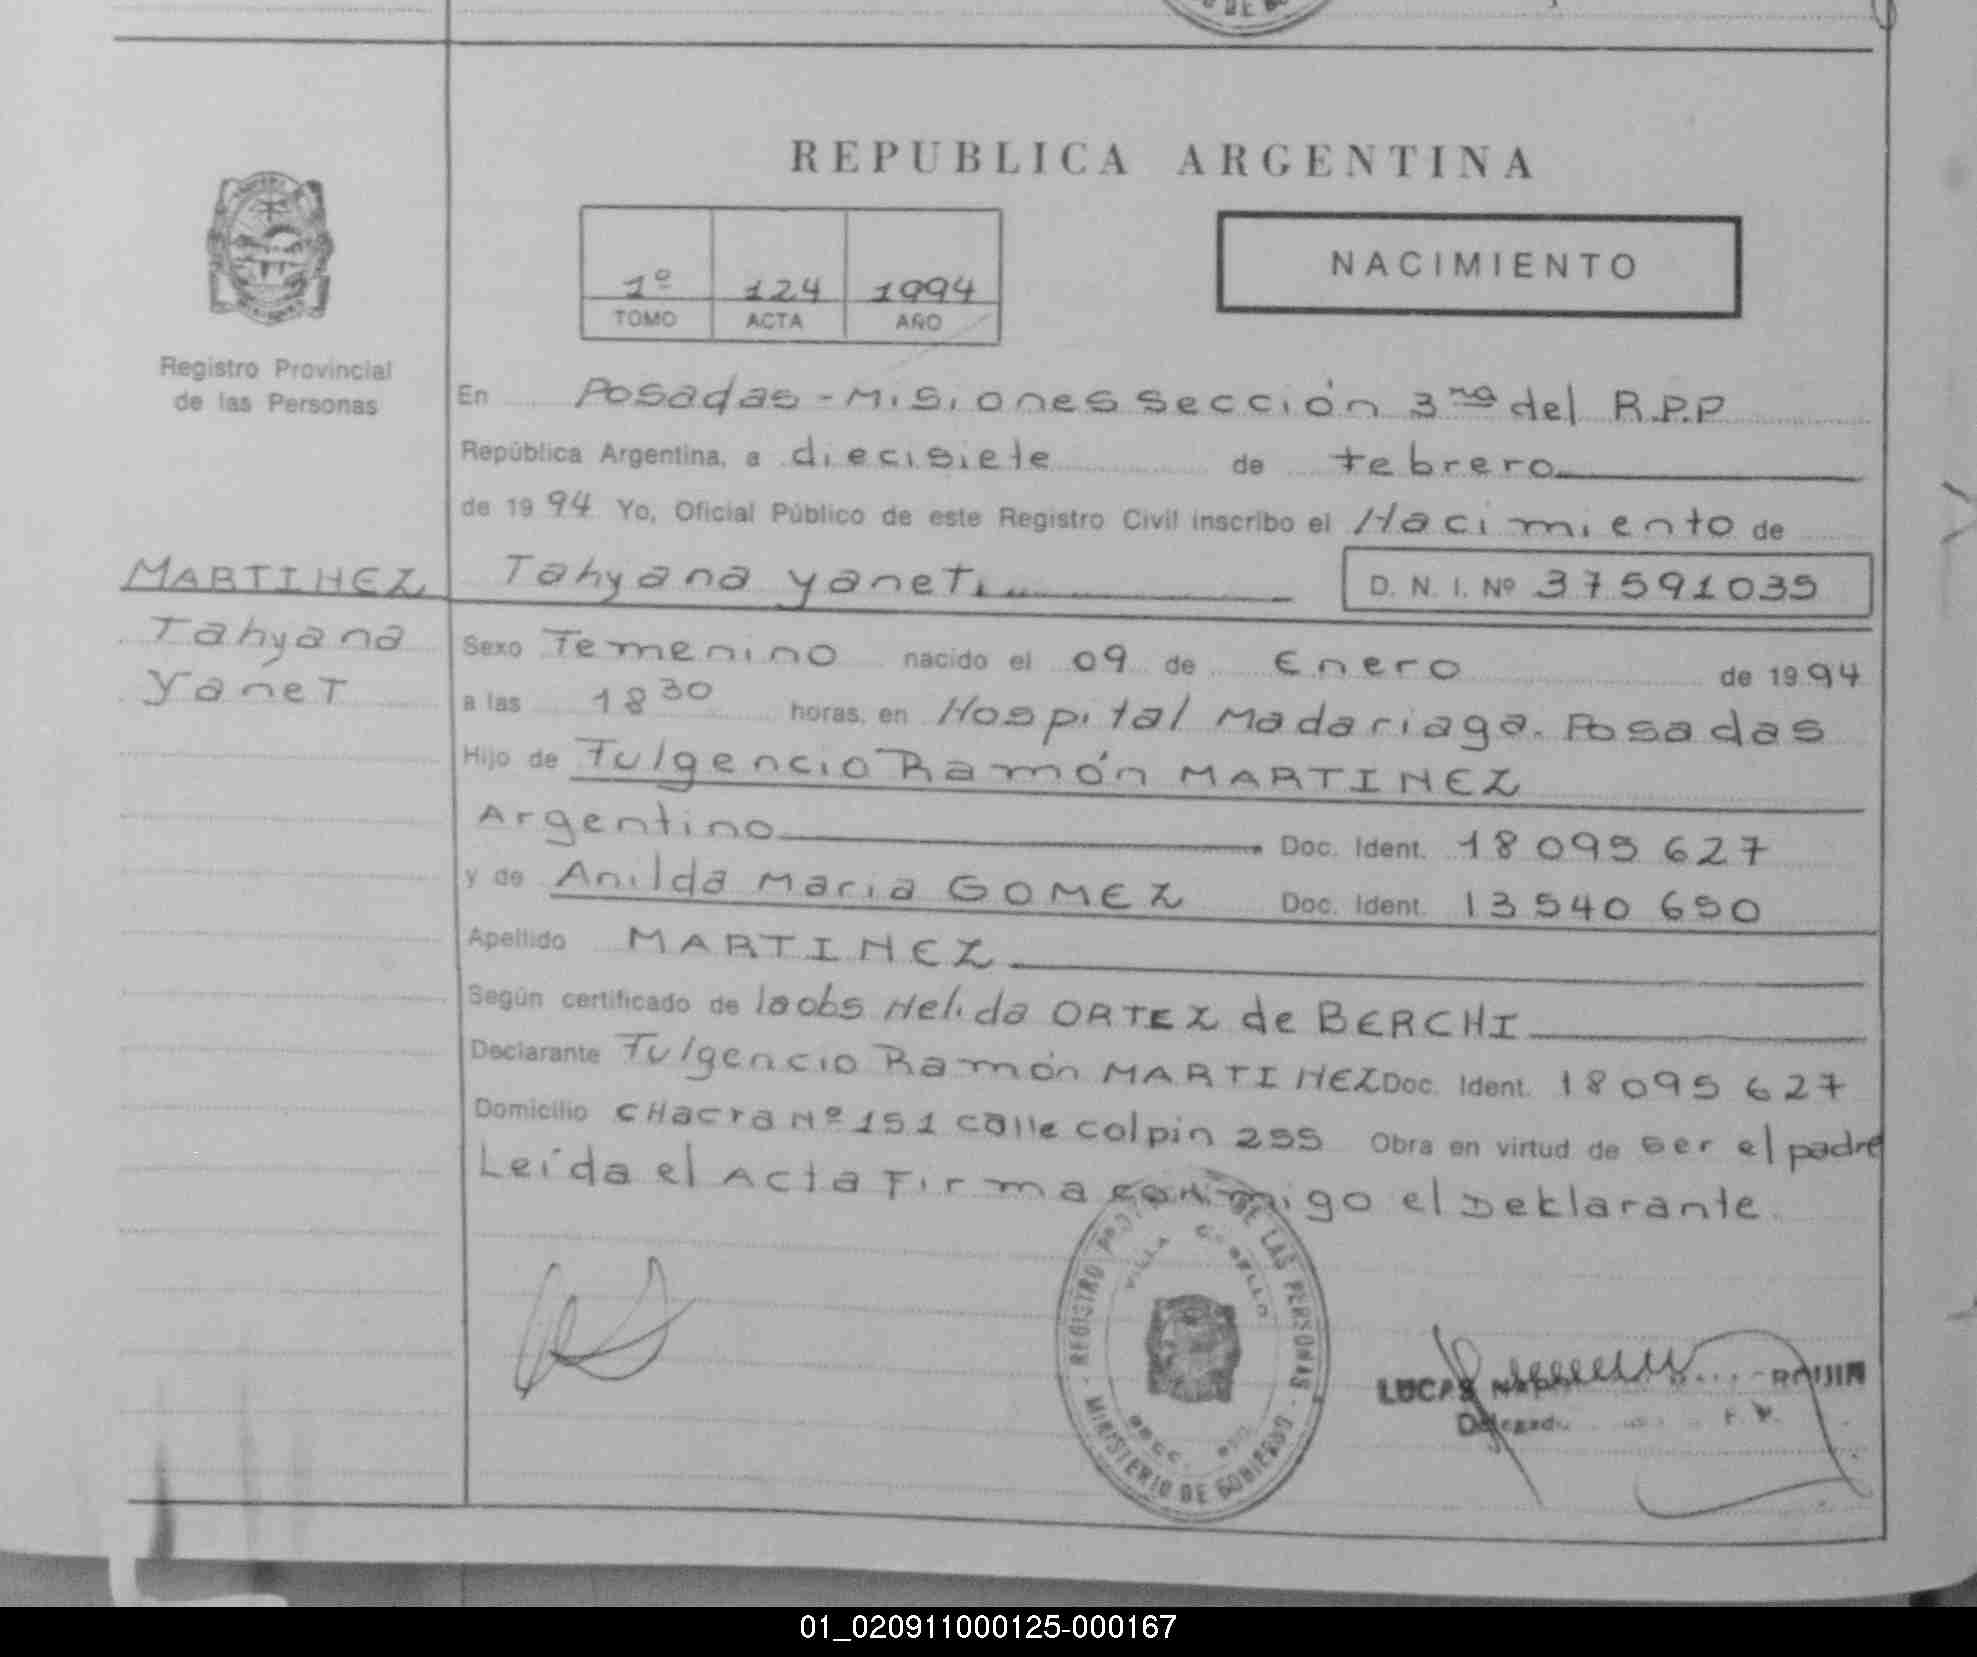 REPUBLICA ARGENTINA
1º 124 1994
TOMO ACTA AÑO
NACIMIENTO
Registro Provincial
de las Personas
En Posadas - Misiones sección 3ra del R.P.P
República Argentina, a diecisiete de Febrero
de 1994 Yo, Oficial Público de este Registro Civil inscribo el Nacimiento de
MARTINEZ Tahyana Yanet
D. N. I. Nº 37591035
Tahyana
Yanet
Sexo Femenino nacido el 09 de Enero de 1994
a las 18 30 horas, en Hospital Madariaga. Posadas
Hijo de Fulgencio Ramón MARTINEZ
Argentino Doc. Ident. 18 095 627
y de Anilda Maria GOMEZ Doc. Ident. 13 540 650
Apellido MARTINEZ
Según certificado de la obs Nelida ORTEZ de BERCHI
Declarante Fulgencio Ramón MARTINEZ Doc. Ident. 18 095 627
Domicilio CHacra Nº 151 calle colpin 255 Obra en virtud de ser el padre
Leída el Acta Firma conmigo el Deklarante
REGISTRO DE LAS PERSONAS
VILLA
MINISTERIO DE GOBIERNO
LUCAS
01_020911000125-000167